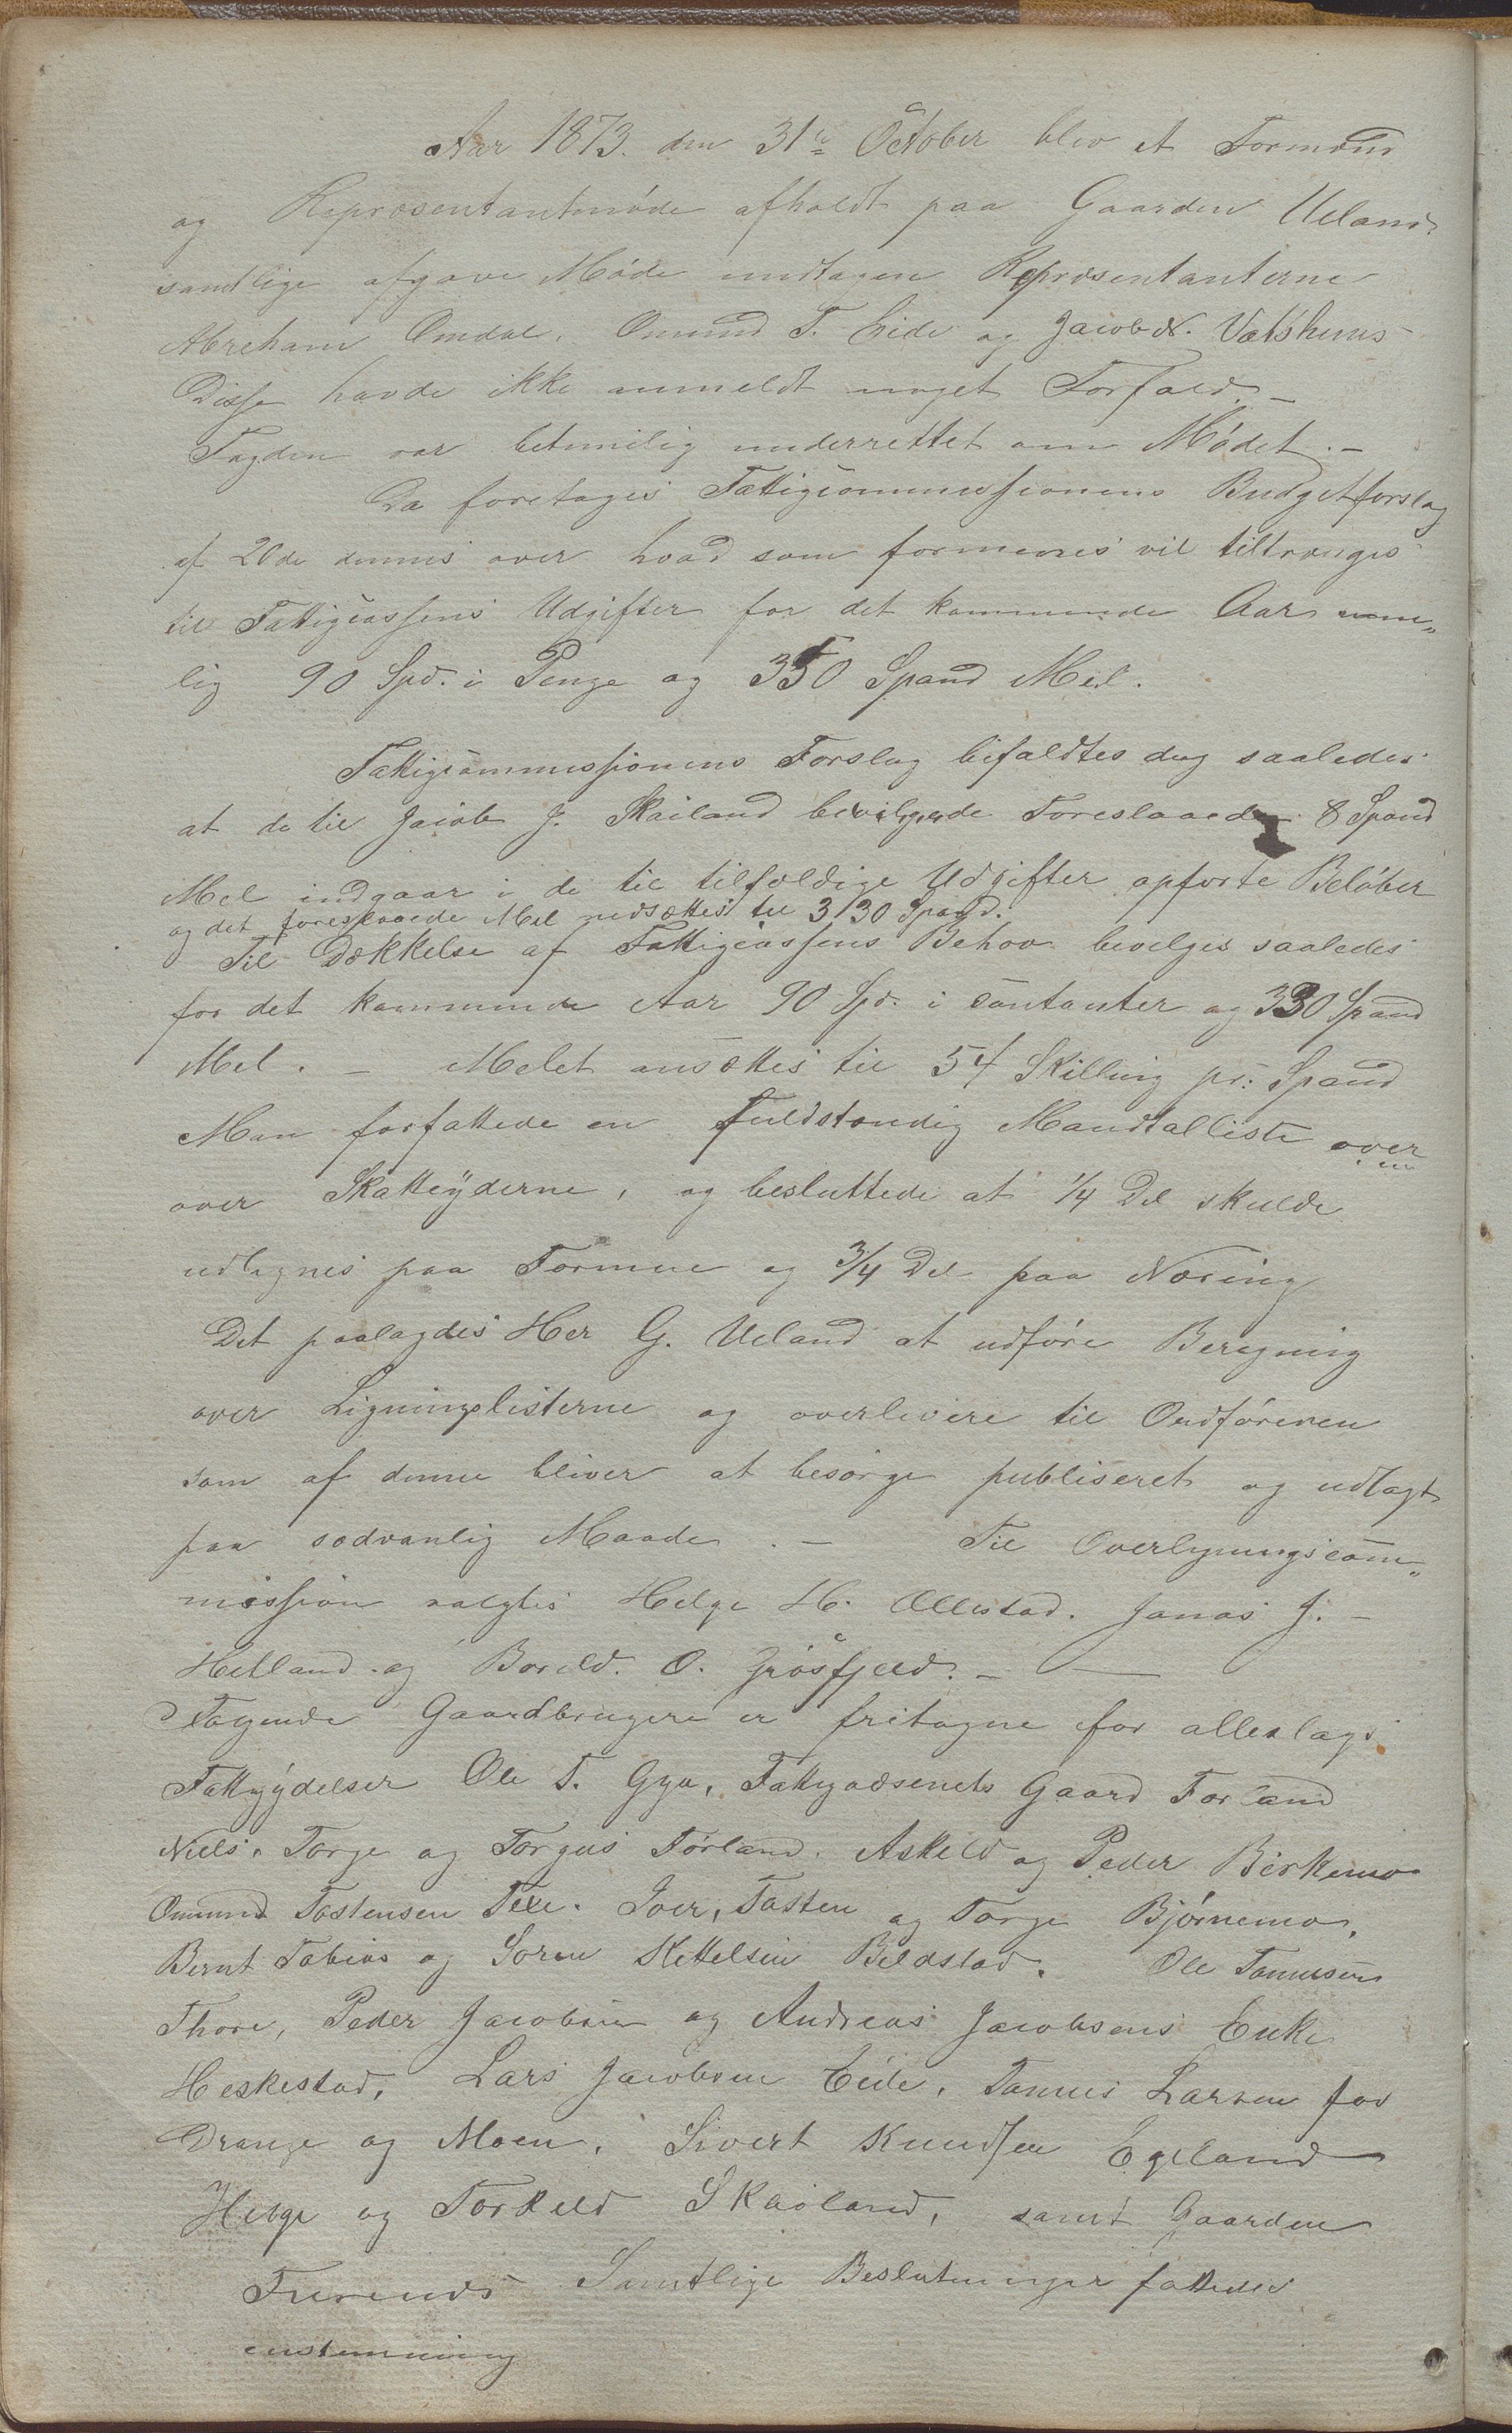 Aar 1873. den 31te October blev et Formænd
og Repræsentantmøde afholdt paa Gaarden Ueland.
samtlige afgave Møde undtagen Repræsentanterne
Abreham Omdal, Omund T. Eide og Jacob N. Vatshuus
Disse havde ikke anmeldt noget Forfald. —
Fogden var betimelig underrettet om Mødet. —
Da foretages Fattigcommissionens Budgetforslag
af 20de dennes over hvad som formenes vil tiltrænges
til Fattigcassens Udgifter for det kommende Aar nem„
lig 90 Spd. i Penge og 350 Spand Mel.
Fattigcommissionens Forslag bifaldtes dog saaledes
at de til Jacob J. Skailand bevilgede Foreslaaede 8 Spand
Mel indgaar i de til tilfældige Udgifter opførte Beløber
og det foreslaaede Mel nedsættes til 330 Spand.
Til Dækkelse af Fattigcassens Behov bevelges saaledes
for det kommende Aar 90 Spd. i contanter og 330 Spand
Mel. — Melet ansættes til 54 Skilling pr: Spand
Man forfattede en Fuldstændig Mandtalliste over
over Skatteyderne, og besluttede at 1/4 Del skulde
udlignes paa Formue og 3/4 Del paa Næring
Det paalagdes Her G. Ueland at udføre Beregning
over Ligningslisterne og overlevere til Ordføreren
som af denne bliver at besørge publiseret og udlagt
paa sædvanlig Maade. — Til Overligningscom„
mission valgtes Helge H. Ollestad. Jonas J. —
Hetland og Boreld. O. Grøsfjeld. —
Følgende Gaardbrugere er fritagne for alleslags
Fattigydelser Ole T. Gya, Fattigvæsenets Gaard Forland
Niels, Torge og Torgus Førland. Askeld og Peder Birkemo
Omund Tostensen Texe. Iver, Tosten og Torge Bjørnemo,
Bernt Tobias og Soren Kettelsen Bildstad. Ole Tønnesen
Thore, Peder Jacobsen og Andreas Jacobsens Enke
Heskestad, Lars Jacobsen Eide, Tønnes Larsen for
Drange og Moen, Sivert Knudsen Egeland
Helge og Torkeld Skaoland, samt Gaarden
Samtlige Beslutninger fattedes
enstemming